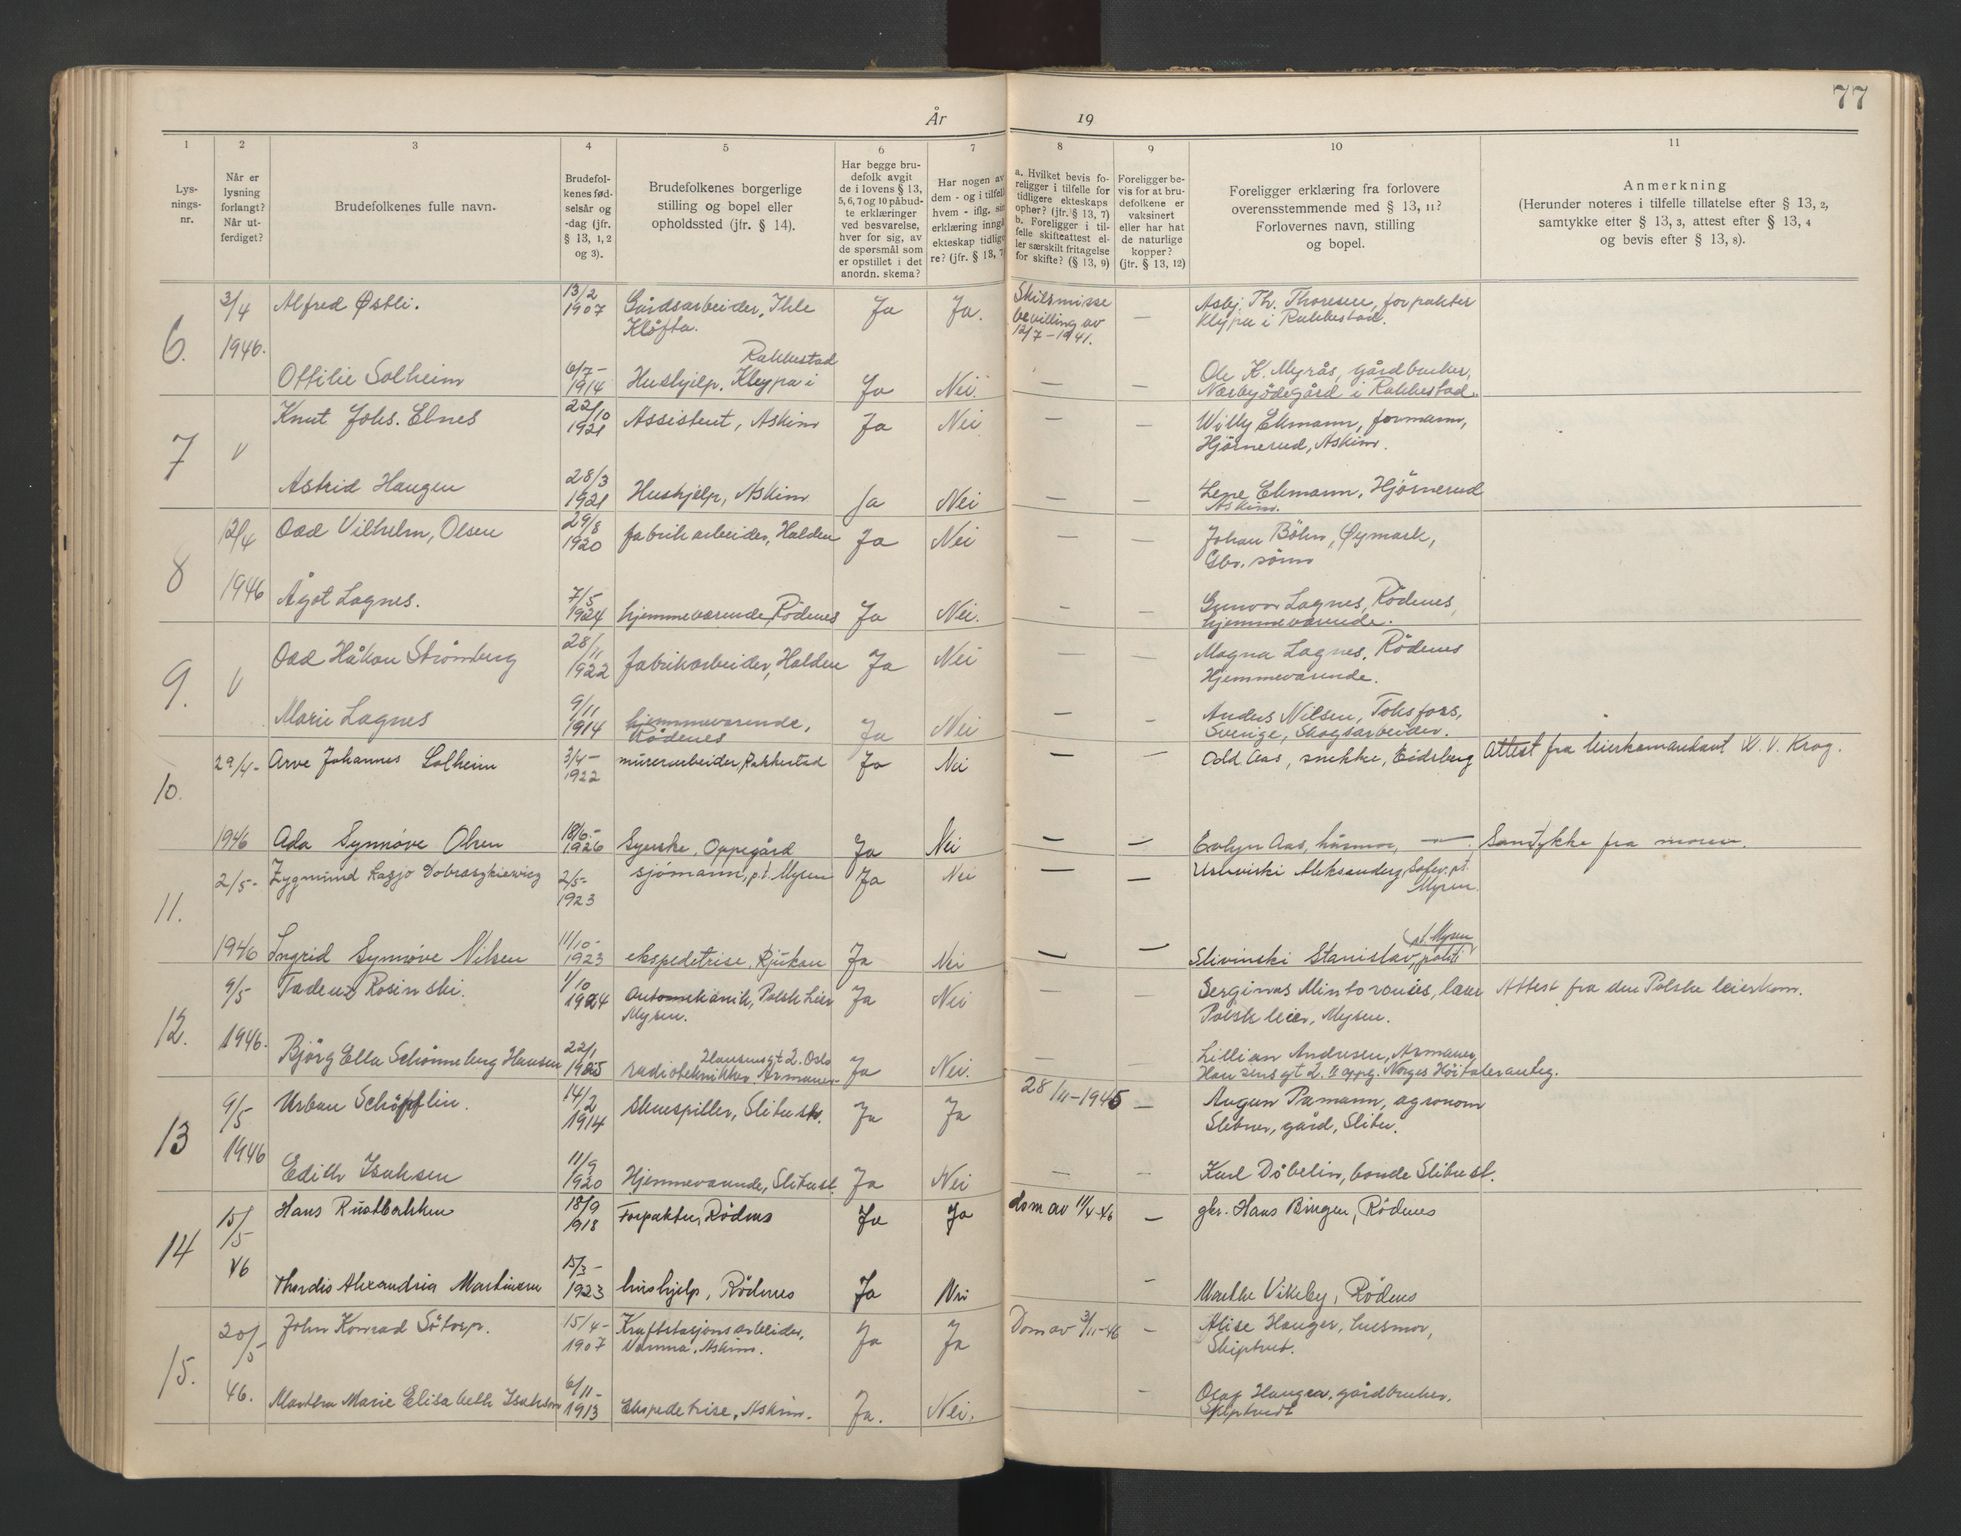 77
År 19
1 2 3 4 5 6 7 8 9 10 11
Lys-
nings-
nr.
Når er
lysning
forlangt?
Når ut-
ferdiget?
Brudefolkenes fulle navn.
Brudefol-
kenes fød-
selsår og
-dag (jfr.
§ 13, 1, 2
og 3).
Brudefolkenes borgerlige
stilling og bopel eller
opholdssted (jfr. § 14).
Har begge bru-
defolk avgit
de i lovens § 13,
5, 6, 7 og 10 påbud-
te erklæringer
ved besvarelse,
hver for sig, av
de spørsmål som
er opstillet i det
anordn. skema?
Har nogen av
dem - og i tilfelle
hvem - iflg. sin
erklæring inngå
ekteskap tidlige
re? (jfr. § 13, 7
a. Hvilket bevis fo-
religger i tilfelle for
tidligere ekteskaps
ophør? (jst. § 13, 7)
b. Foreligger i til-
felle skifteattest el-
ler særskilt fritagelse
for skifte? (§ 13, 9)
Foreligger be-
vis for at bru-
defolkene er
vaksinert
eller har hat
de naturlige
kopper?
(jfr. § 13, 12)
Foreligger erklæring fra forlovere
overensstemmende med § 13, 11?
Forlovernes navn, stilling
og bopel.
Anmerkning
(Herunder noteres i tilfelle tillatelse efter § 13, 2,
samtykke efter § 13, 3, attest efter § 13, 4
og bevis efter § 13, 8).
6. 3/4 1946. Alfred Østli. 13/2 1907 Gårdsarbeider, Ihle
Kløfta. Ja Ja. Skilsmisse
bevilling av
12/7-1941. — Asbj. Th. Thoresen, forpakter
Kleypa i Rakkestad.
Ottilie Solheim 6/7- 1914 Hushjelp, Kleypa i
Rakkestad Ja Nei. — — Ole K. Myrås, gårdbruker,
Nærbyødegård i Rakkestad.
7 " Knut Johs. Elnes 22/10 1921 Assistent, Askim Ja Nei — — Willy Ekmann, formann,
Hjørnerud, Askim.
Astrid Haugen 28/3 1921 Hushjelp, Askim Ja Nei — — Lene Ekmann, Hjørnerud
Askim.
8 12/4 1946 Odd Vilhelm, Olsen 29/8 1920 fabrikarbeider, Halden Ja Nei — — Johan Böhn, Øymark,
Gbr. sønn
Ågot Lognes. 7/5 1924 hjemmeværende, Rödenes Ja Nei. — — Gunvor Lognes, Rödenes,
hjemmeværende.
9. " Odd Håkon Strømberg 28/11 1922 fabrikarbeider, Halden Ja Nei — — Magna Lognes, Rödenes
Hjemmeværende.
Marie Lognes 9/11 1914 hjemmeværende,
Rödenes Ja Nei — — Anders Nilsen, Toksfors,
Sverige, Skogsarbeider.
10. 29/4- 1946 Arve Johannes Solheim 3/4- 1922 murerarbeider, Rakkestad Ja Nei — — Odd Aas, snekke, Eidsberg Attest fra leirkomandant W. V. Krog.
Ada Synnøve Olsen 18/6- 1926 Syerske, Oppegård Ja Nei — — Evlyn Aas, husmor, — Samtykke fra moren.
11. 2/5- 1946 Zygmund Lasjo Dobraszkiewicz 2/5- 1923 sjømann, p.t. Mysen Ja Nei — — Aleksanderg, pt.
Mysen.
Ingrid Synnøve Nilsen 11/10- 1923 ekspeditrise, Rjukan Ja Nei — — Slivinski Stanislav, politi
(pt. Mysen
12. 9/5 1946. Tadeuz Rosinski. 1/10 1924 Automekanik, Polsk Leir
Mysen. Ja Nei — — Serginas Mintovonies, læer
Polsk leir, Mysen. Attest fra den Polske leierkom.
Bjørg Ella Schønneberg Hansen 22/1 1925 radiotekniker Armauer-
Hansensgt 2. Oslo Ja Nei. — Lillian Andresen, Armauer
Hansensgt 2. II oppg. Norges Höitaleranteg.
13 9/5 1946 Urban Schöpflin. 14/2 1914 Skuespiller, Slitu st. Ja Ja 28/11-1945 — Augun Pamann, agronom
Slitner, gård, Slitu.
Edith Isaksen 11/9 1920 Hjemmeværende, Slitu st. Ja Nei — — Karl Döbelin, bonde Slitu st.
14 15/5 46 Hans Rustbakken 18/9 1918 Forpakter, Rödenes Ja Ja dom av 11/4-46 — gbr. Hans Bingen, Rödenes
Thordis Alexandria Martinsen 15/3- 1923 hushjelp, Rödenes Ja Nei — Marthe Vikeby, Rödenes
15. 20/5 46. John Konrad Sötorp. 15/4- 1907 Kraftstasjonsarbeider,
Vamma, Askim. Ja Ja Dom av 3/11-46 — Alise Haugen, husmor,
Skiptvet.
Martha Marie Elisabeth Isaksen 6/11- 1913 Ekspeditrise, Askim. Ja. Nei. — Olaf Haugen, gårdbruker,
Skiptvedt